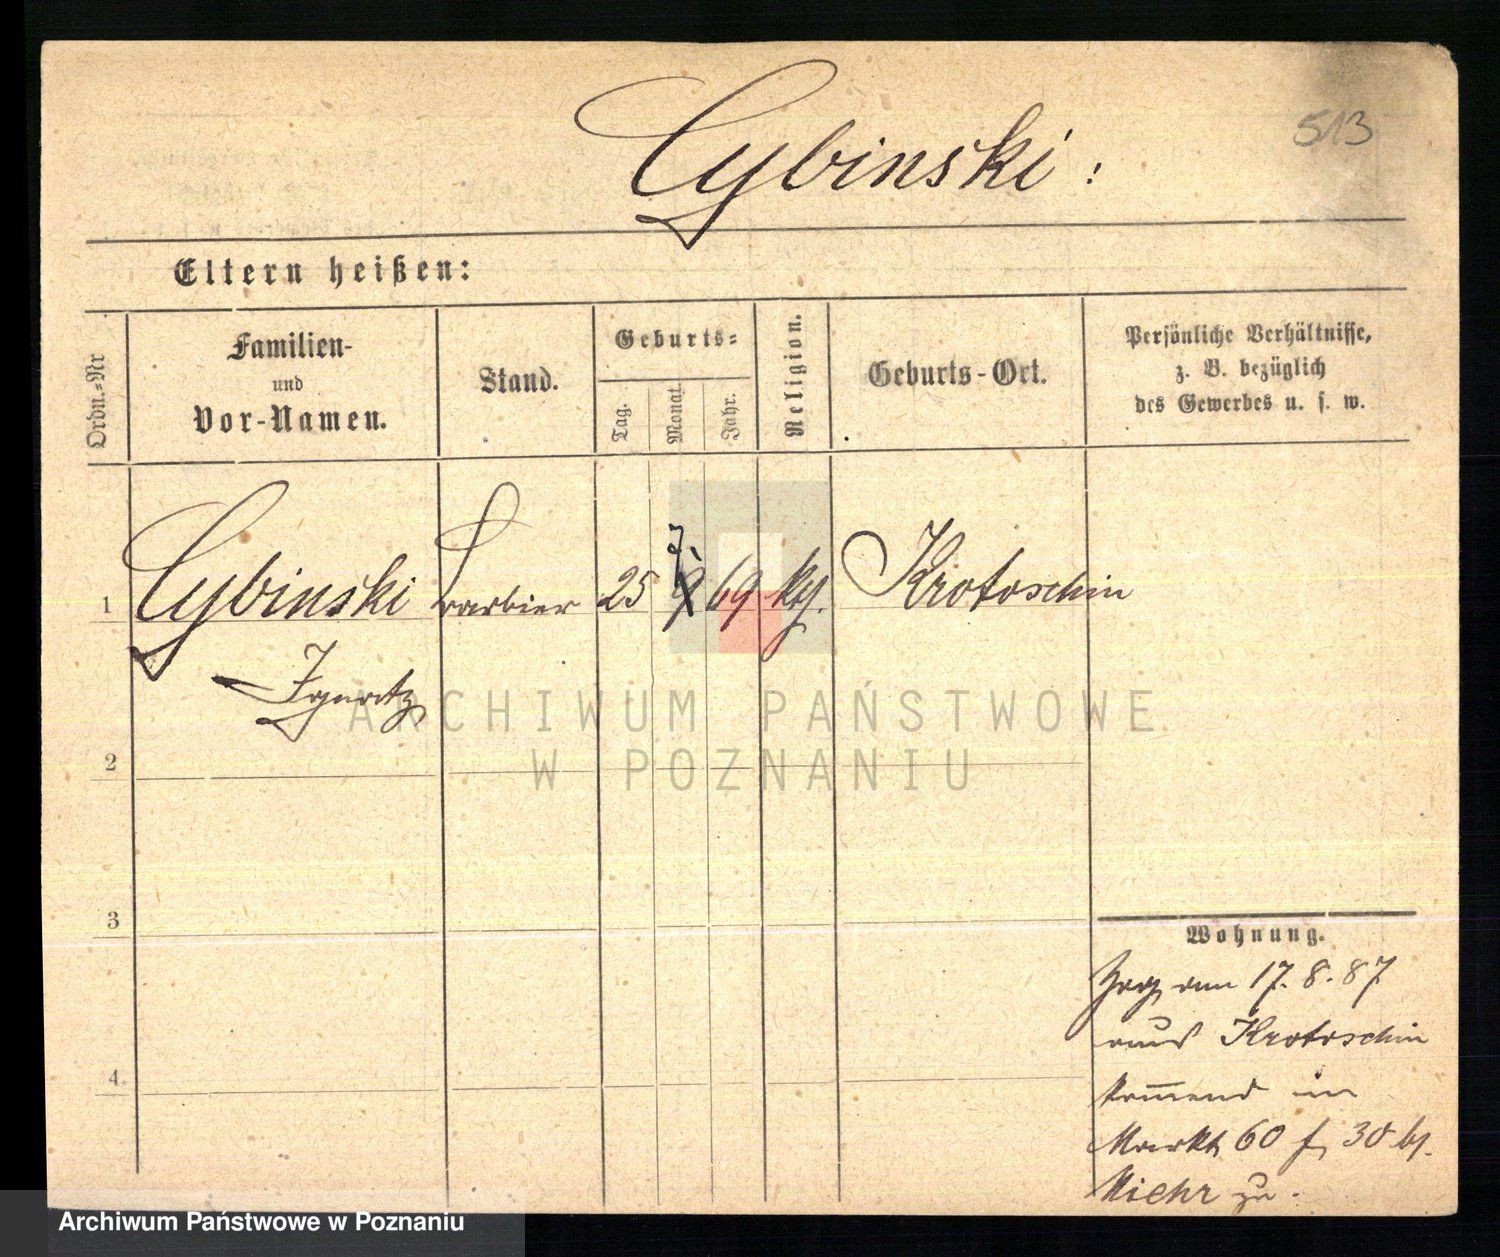 513
Cybinski:
Eltern heißen:
Ordn.-Nr
Familien-
und
Vor-Namen.
Stand.
Geburts-
Tag.
Monat
Jahr.
Religion.
Geburts-Ort.
Persönliche Verhältnisse,
z. B. bezüglich
des Gewerbes u. s. w.
1 Cybinski Barbier 25 7 69 kth. Krotoschin
Ignatz
ARCHIWUM PAŃSTWOWE
W POZNANIU
2
3
4
Wohnung.
Zog am 17. 8. 87
aus Krotoschin
kommend im
Markt 60 f, 30 by.
Miehr zu.
Archiwum Państwowe w Poznaniu